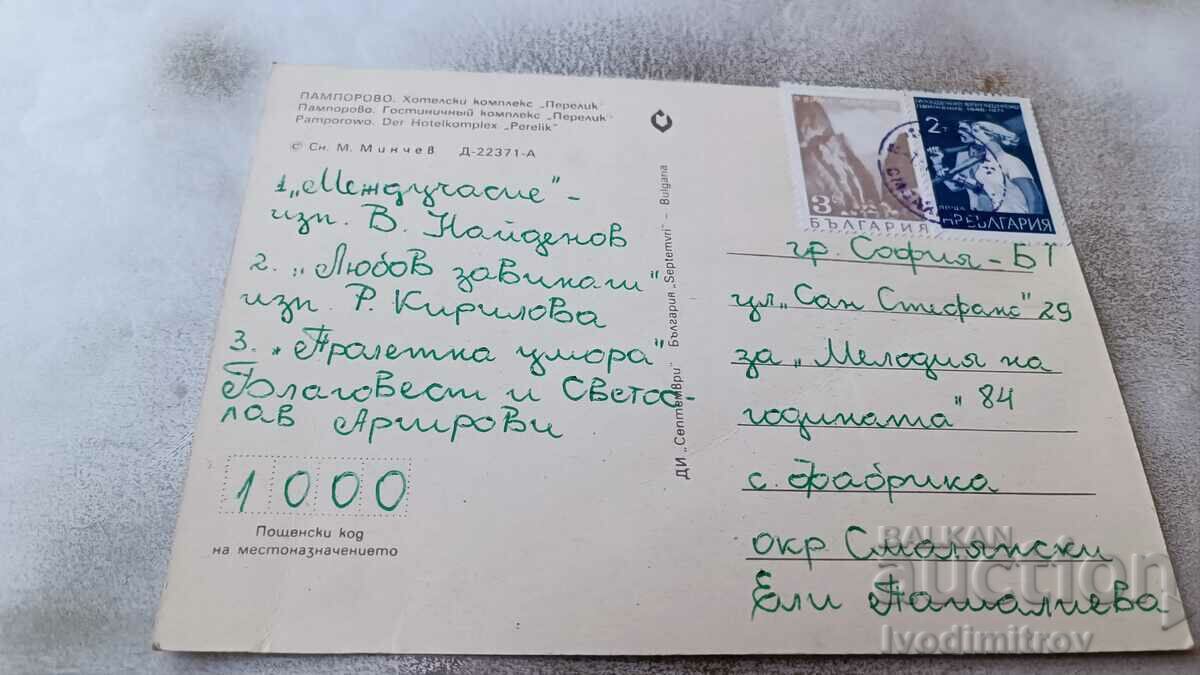 ПАМПОРОВО. Хотелски комплекс „Перелик"
Пампорово. Гостиничный комплекс „Перелик"
Pamporowo. Der Hotelkomplex „Perelik"
© Сн. М. Минчев Д-22371-А
1 „Междучасие" -
изп. В. Найденов
2. „Любов завинаги"
изп. Р. Кирилова
3. „Пролетна умора"
Благовест и Светос-
лав Аргирови
1000
Пощенски код
на местоназначението
ДИ „Септември" България „Septemvri" – Bulgaria
3
БЪЛГАРИЯ
2
НР БЪЛГАРИЯ
гр. София - БТ
ул „Сан Стефано" 29
за „Мелодия на
годината" 84
с. Фабрика
окр Смолянски
Ели Пашалиева
BALKAN
auction
Ivodimitrov